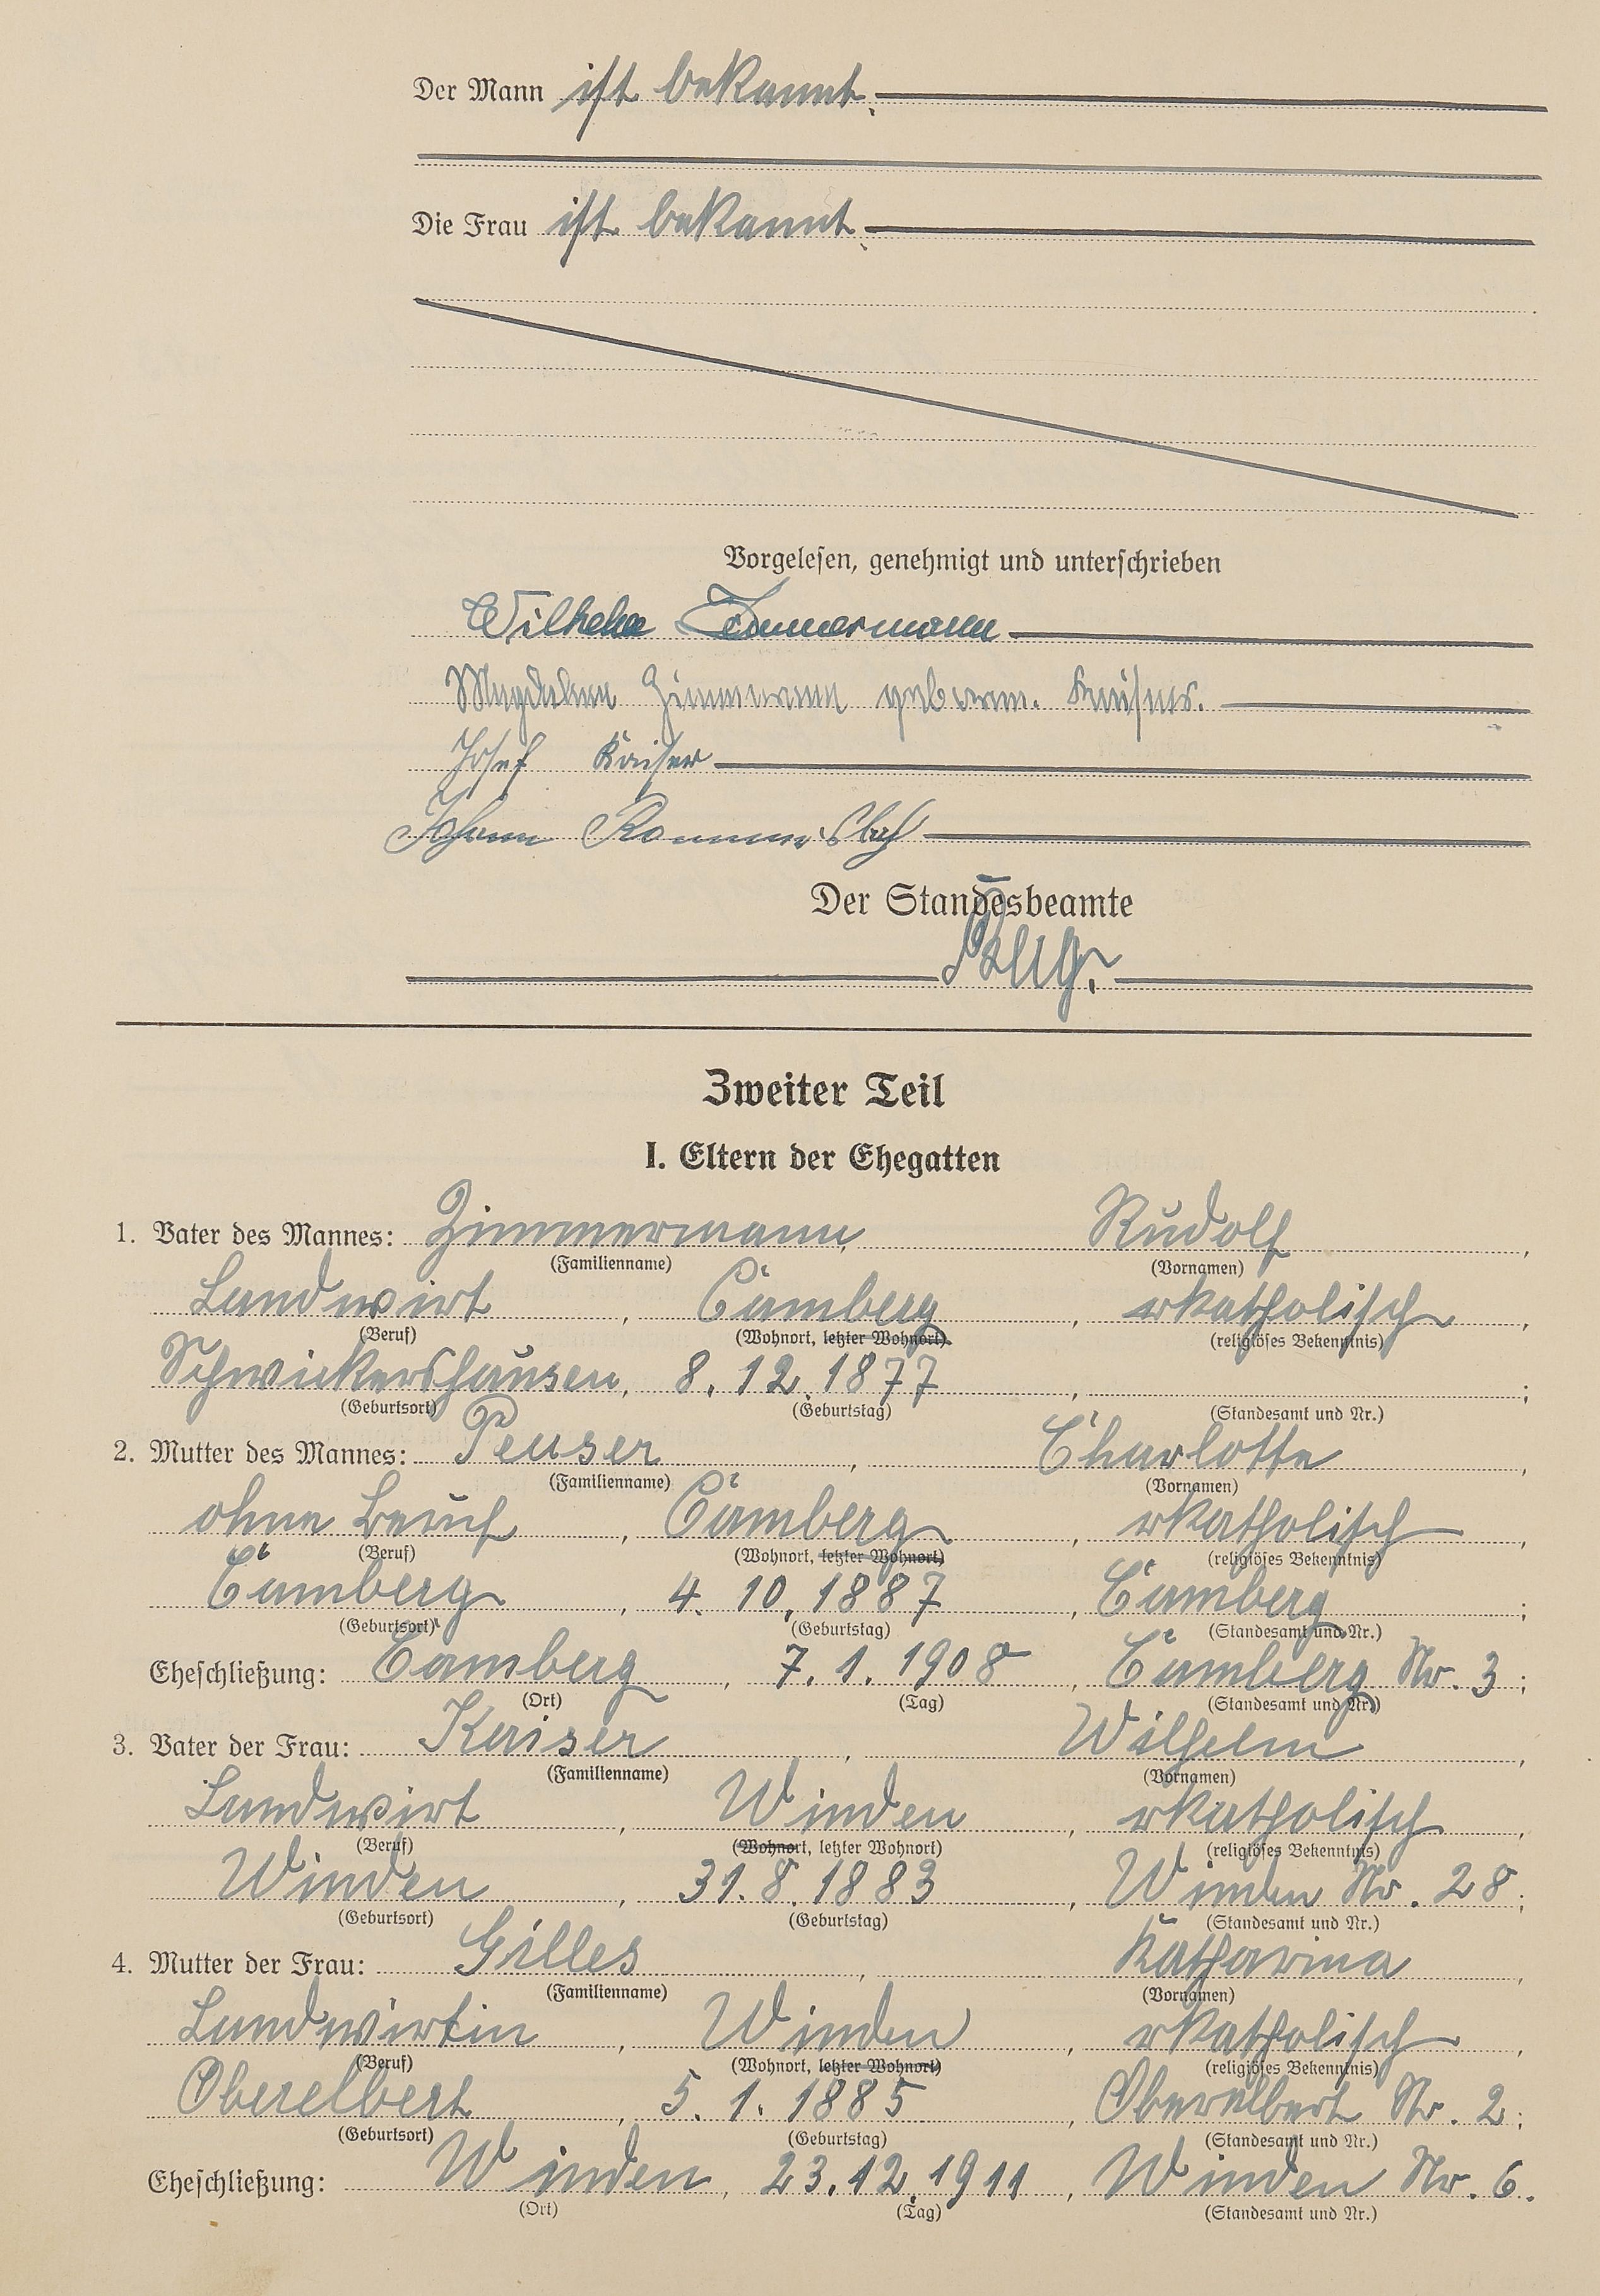 Der Mann ist bekannt.
Die Frau ist bekannt.
Vorgelesen, genehmigt und unterschrieben
Wilhelm Zimmermann
Magdalena Zimmermann geborene Kaiser.
Josef Kaiser
Johann
Der Standesbeamte
Zweiter Teil
I. Eltern der Ehegatten
1. Vater des Mannes: Zimmermann, Rudolf,
(Familienname) (Vornamen)
Landwirt, Camberg, rkatholisch,
(Beruf) (Wohnort, letzter Wohnort) (religiöses Bekenntnis)
Schwickershausen, 8.12.1877, ;
(Geburtsort) (Geburtstag) (Standesamt und Nr.)
2. Mutter des Mannes: Peuser, Charlotte,
(Familienname) (Vornamen)
ohne Beruf, Camberg, rkatholisch,
(Beruf) (Wohnort, letzter Wohnort) (religiöses Bekenntnis)
Camberg, 4. 10. 1887, Camberg;
(Geburtsort) (Geburtstag) (Standesamt und Nr.)
Eheschließung: Camberg, 7. 1. 1908, Camberg Nr. 3;
(Ort) (Tag) (Standesamt und Nr.)
3. Vater der Frau: Kaiser, Wilhelm,
(Familienname) (Vornamen)
Landwirt, Winden, rkatholisch,
(Beruf) (Wohnort, letzter Wohnort) (religiöses Bekenntnis)
Winden, 31.8.1883, Winden Nr. 28;
(Geburtsort) (Geburtstag) (Standesamt und Nr.)
4. Mutter der Frau: Gilles, Katharina,
(Familienname) (Vornamen)
Landwirtin, Winden, rkatholisch,
(Beruf) (Wohnort, letzter Wohnort) (religiöses Bekenntnis)
Oberelbert, 5. 1. 1885, Oberelbert Nr. 2;
(Geburtsort) (Geburtstag) (Standesamt und Nr.)
Eheschließung: Winden, 23.12.1911, Winden Nr. 6.
(Ort) (Tag) (Standesamt und Nr.)